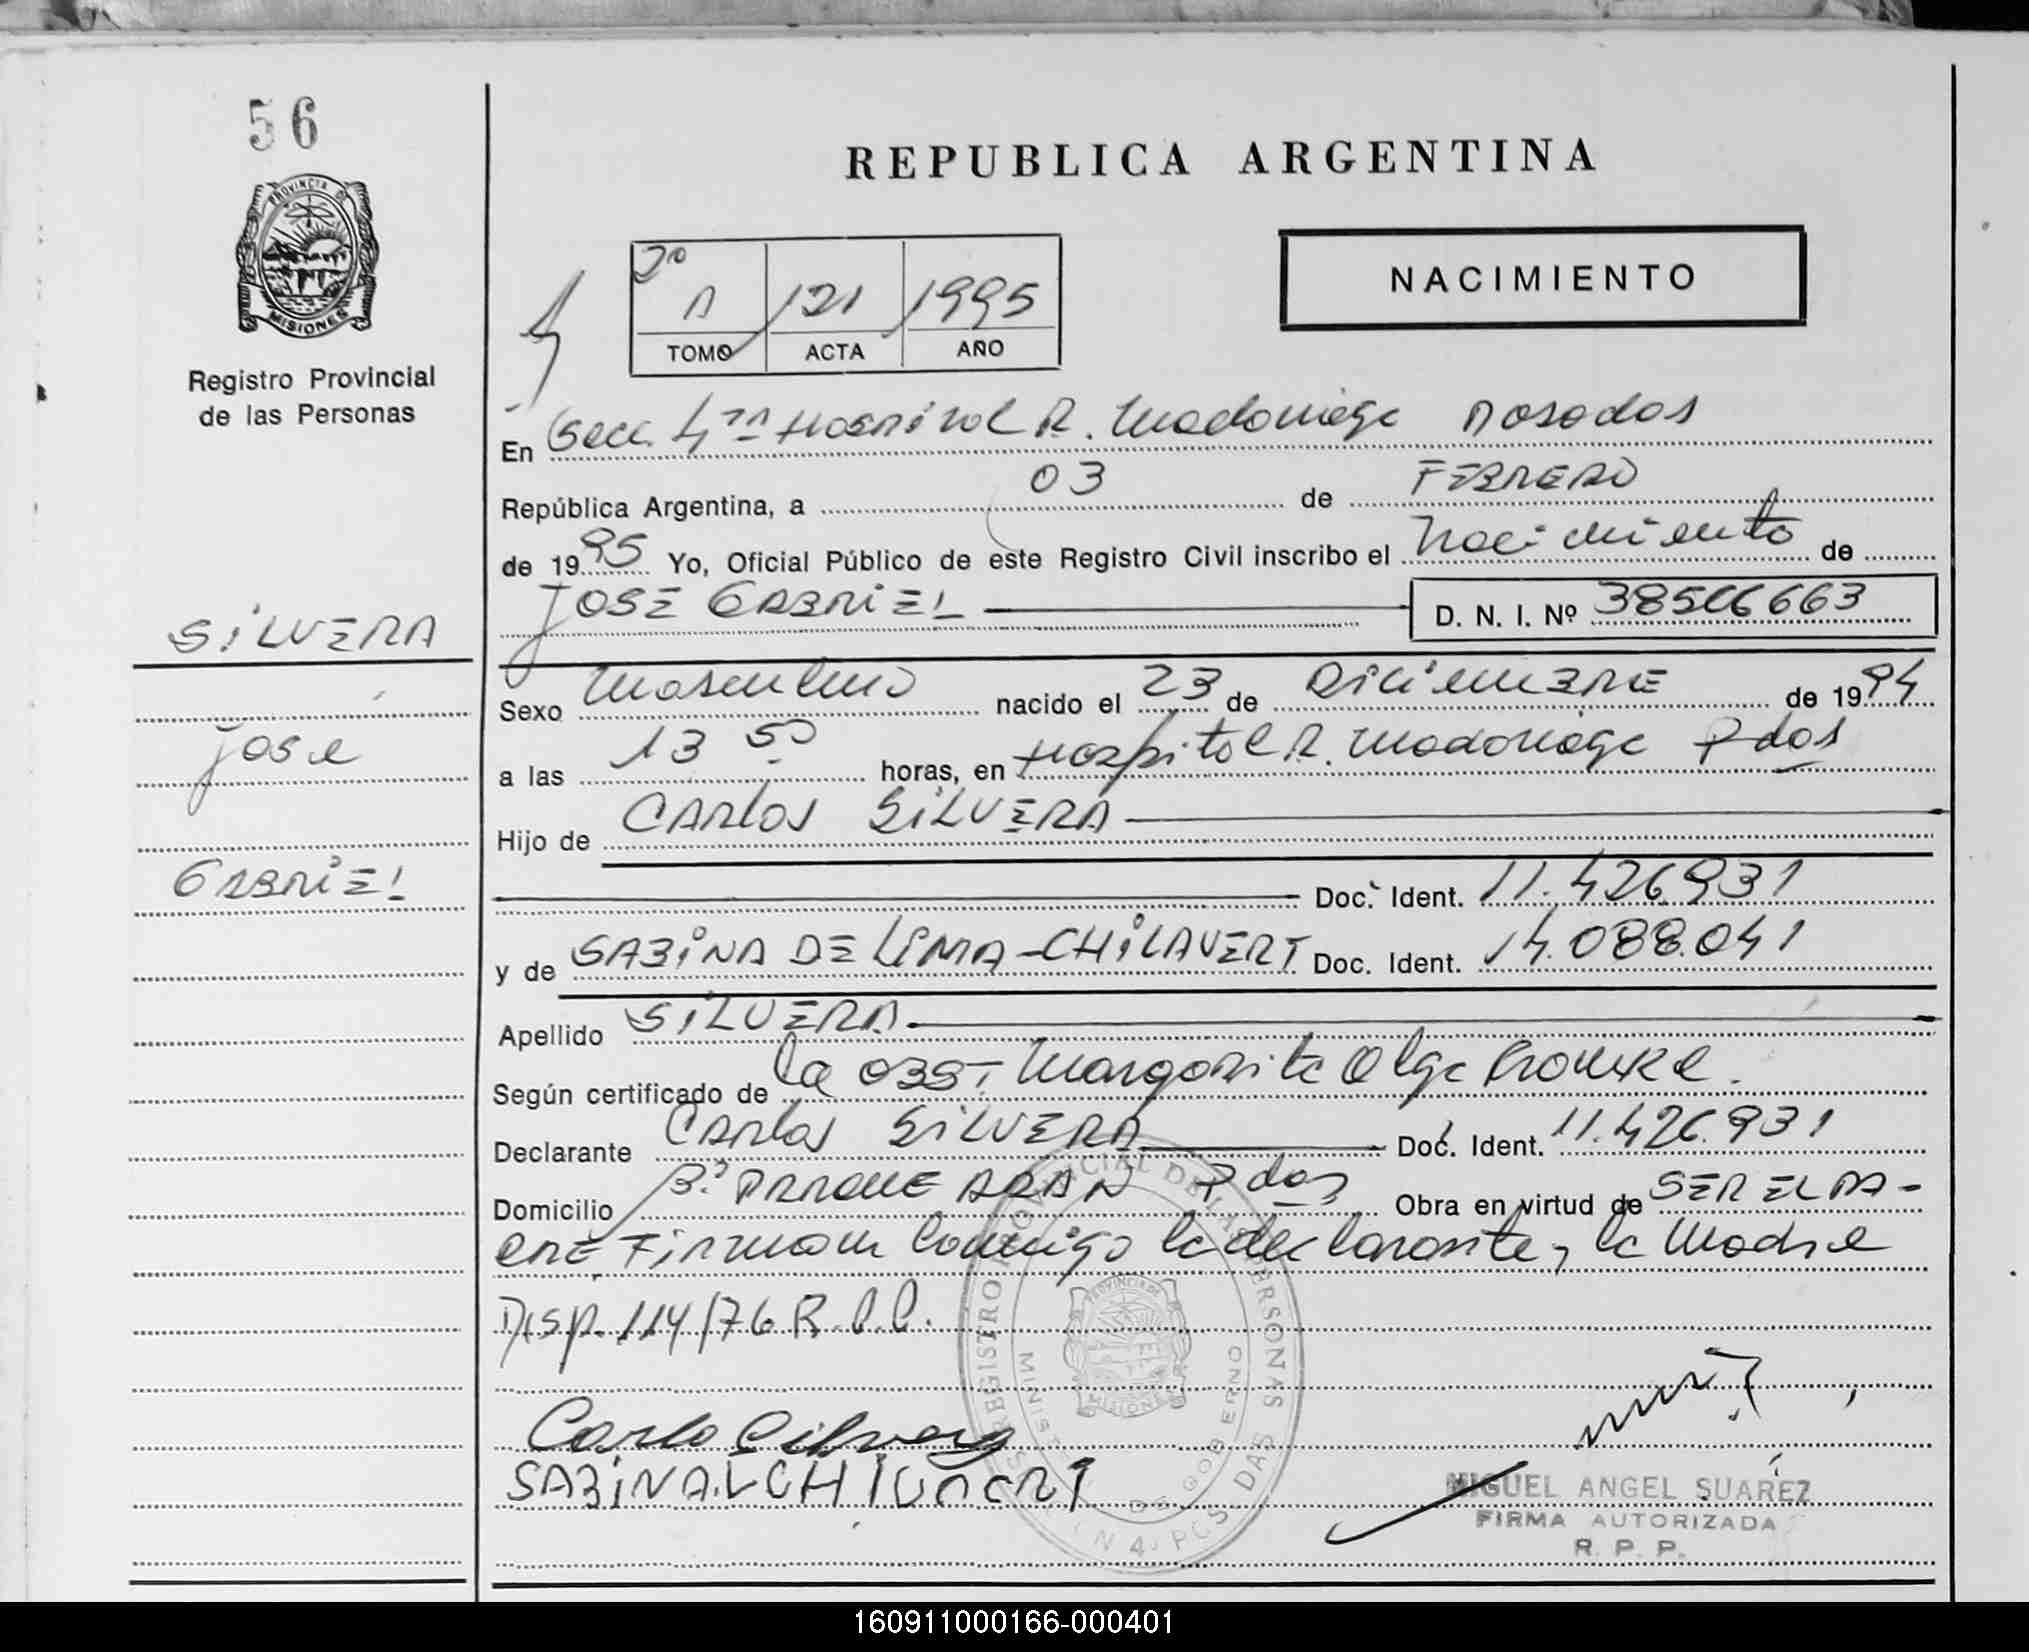 56
PROVINCIA DE
MISIONES
Registro Provincial
de las Personas
REPUBLICA ARGENTINA
NACIMIENTO
2º
A 121 1995
TOMO ACTA AÑO
En Secc. 4ta Hospital R. Madariaga Posadas
República Argentina, a 03 de FEBRERO
de 1995 Yo, Oficial Público de este Registro Civil inscribo el Nacimiento de
JOSE GABRIEL D. N. I. Nº 38566663
SILVERA
Jose
GABRIEL
Sexo Masculino nacido el 23 de DICIEMBRE de 1994
a las 13 50 horas, en Hospital R. Madariaga Pdas
Hijo de CARLOS SILVERA
Doc. Ident. 11.426.931
y de SABINA DE LIMA - CHILAVERT Doc. Ident. 14.088.041
Apellido SILVERA
Según certificado de la OBST. Margarita Olga
Declarante CARLOS SILVERA Doc. Ident. 11.426.931
Domicilio Bº PARQUE ADAN Pdas Obra en virtud de SER EL PA-
DRE Firman Conmigo el declarante y la Madre
Disp. 114/76 R.P.P.
Carlo Silvera
SABINA.L CHILAVERT
REGISTRO PROVINCIAL DE LAS PERSONAS
MINISTERIO DE GOBIERNO
PROVINCIA DE
MISIONES
MIGUEL ANGEL SUAREZ
FIRMA AUTORIZADA
R. P. P.
160911000166-000401